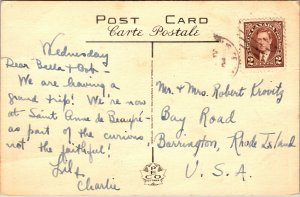 POST CARD
Carte Postale
Wednesday
Dear Bella & Bob -
We are having a
grand trip! We're now
at Saint Anne de Beaupré
as part of the curious
not the faithful!
Lil &
Charlie
Mr. & Mrs. Robert Krovitz
Bay Road
Barrington, Rhode Island
U. S. A.
PECO